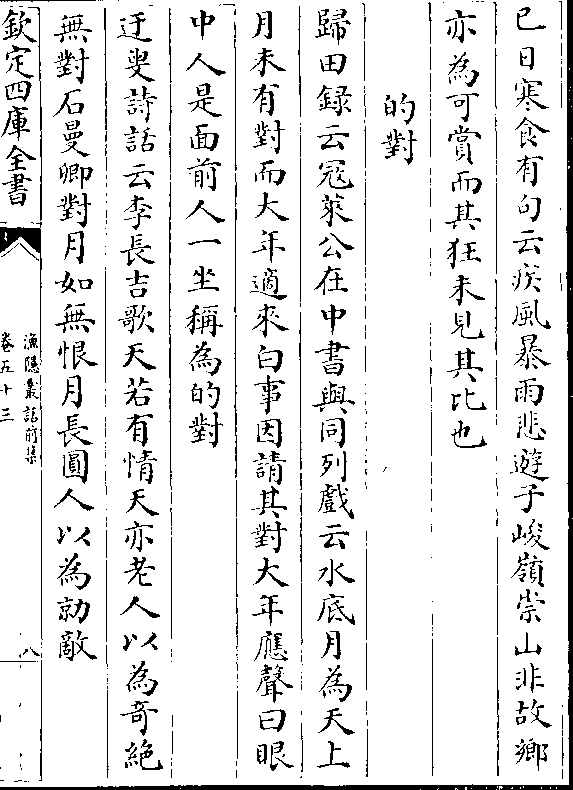 巳日寒食有句云疾風暴雨悲遊子峻嶺崇山非故鄉
亦為可賞而其狂未見其比也
的對
歸田録云冦萊公在中書與同列戲云水底月為天上
月未有對而大年適來白事因請其對大年應聲曰眼
中人是面前人一坐稱為的對
迂叟詩話云李長吉歌天若有情天亦老人以為奇絶
無對石曼卿對月如無恨月長圓人以為勍敵
欽定四庫全書
漁隠叢話前集
卷五十三
八